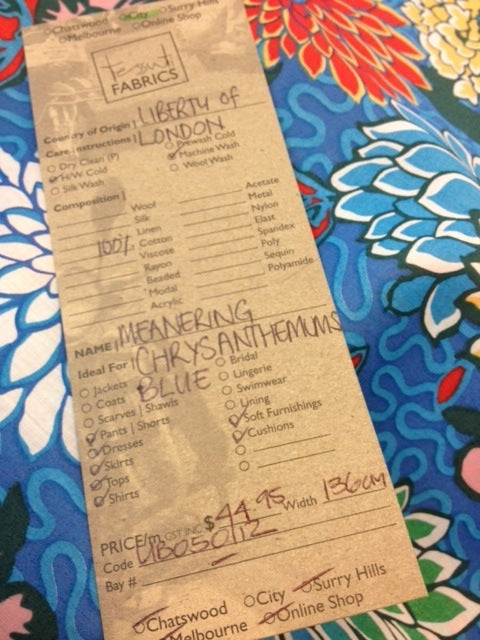 Chatswood City Surry Hills
Melbourne Online Shop
Tessuti
FABRICS
Country of Origin LIBERTY OF
Care Instructions LONDON
Dry Clean (P) Prewash Cold
H/W Cold Machine Wash
Silk Wash Wool Wash
Composition
Wool Acetate
Silk Metal
Linen Nylon
100% Cotton Elast
Viscose Spandex
Rayon Poly
Beaded Sequin
Modal Polyamide
Acrylic
NAME MEANERING
Ideal For CHRYSANTHEMUMS
BLUE
Jackets Bridal
Coats Lingerie
Scarves | Shawls Swimwear
Pants | Shorts Lining
Dresses Soft Furnishings
Skirts Cushions
Tops
Shirts
PRICE/m GST INC $44.95 Width 136cm
Code UB050/12
Bay #
Chatswood City Surry Hills
Melbourne Online Shop